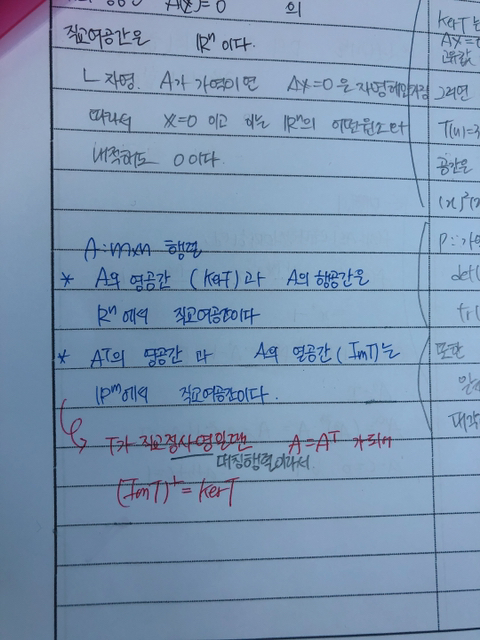 A(x)=0 의
직교여공간은 ℝⁿ 이다.
ㄴ 자명. A가 가역이면 Ax=0 은 자명해만가짐
따라서 x=0 이고 이는 ℝⁿ의 어떤원소와
내적해도 0이다.
A: m×n 행렬
* A의 영공간 (KerT)과 A의 행공간은
ℝⁿ에서 직교여공간이다
* Aᵀ의 영공간과 A의 열공간(ImT)는
ℝᵐ에서 직교여공간이다.
T가 직교정사영일땐 A=Aᵀ 가되어
대칭행렬이라서
(ImT)^⊥ = KerT
KerT 는
Ax=0
고윳값
그러면
T(u)=
공간은
P: 가역
det(
tr(
또한
대각